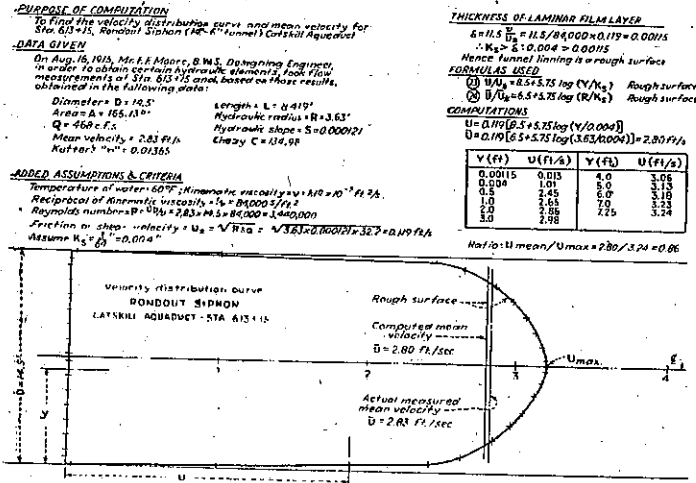 PURPOSE OF COMPUTATION
To find the velocity distribution curve and mean velocity for
Sta. 613+15, Rondout Siphon (14'-6" tunnel) Catskill Aqueduct
DATA GIVEN
On Aug. 16, 1915, Mr. F. F. Moore, B.W.S. Designing Engineer,
in order to obtain certain hydraulic elements, took flow
measurements at Sta. 613+15 and, based on those results,
obtained in the following data:
Diameter = D = 14.5'
Length = L =
Area = A = 165.13
Hydraulic radius = R = 3.63'
Q = 468 c.f.s.
Hydraulic slope = S = 0.000121
Mean velocity = 2.83 ft/s
Chezy C = 134.98
Kutter's "n" = 0.01365
ADDED ASSUMPTIONS & CRITERIA
Temperature of water = 60°F; Kinematic viscosity = ν =
Reciprocal of Kinematic viscosity = = 84,000 s/ft.²
Reynolds number = R = = 2.83 × 14.5 × 84,000 = 3,440,000
Friction or shear velocity = = = √3.63×0.000121×32.2 = 0.119 ft/s
Assume Ks = = 0.004'
THICKNESS OF LAMINAR FILM LAYER
= 11.5 = 11.5/84,000×0.119 = 0.00115
∴ Ks > δ ; 0.004 > 0.00115
Hence tunnel linning is a rough surface
FORMULAS USED
= 8.5+5.75 log (Y/Ks) Rough surface
= 6.5+5.75 log (R/Ks) Rough surface
COMPUTATIONS
U = 0.119[8.5+5.75 log (Y/0.004)]
Ū = 0.119[6.5+5.75 log (3.63/0.004)] = 2.80 ft/s
Y (ft) U (ft/s) Y (ft) U (ft/s)
0.00115 0.013 4.0 3.06
0.004 1.01 5.0 3.13
0.5 2.45 6.0 3.18
1.0 2.65 7.0 3.23
2.0 2.86 7.25 3.24
3.0 2.98
Ratio: U mean/U max = 2.80/3.24 = 0.86
Velocity distribution curve
RONDOUT SIPHON
CATSKILL AQUADUCT - STA 613+15
Rough surface
Computed mean
velocity
Ū = 2.80 ft./sec
Umax.
1
2
3
4
D = 14.5'
Y
Actual measured
mean velocity
Ū = 2.83 ft./sec
U